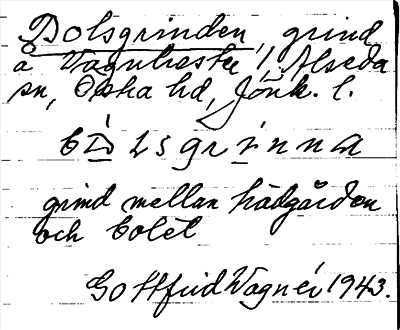 Bolsgrinden, grind
å Vagnhester /, Alseda
sn, Östra hd, Jönk. l.
bo͞lsgrinna
grind mellan hädgården
och bolet
Gottfrid Wagnér 1943.